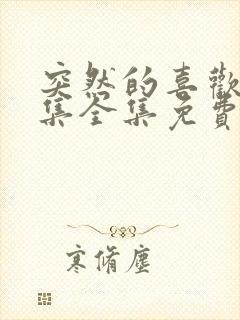 突然的喜歡
集全集免費
寒脩塵